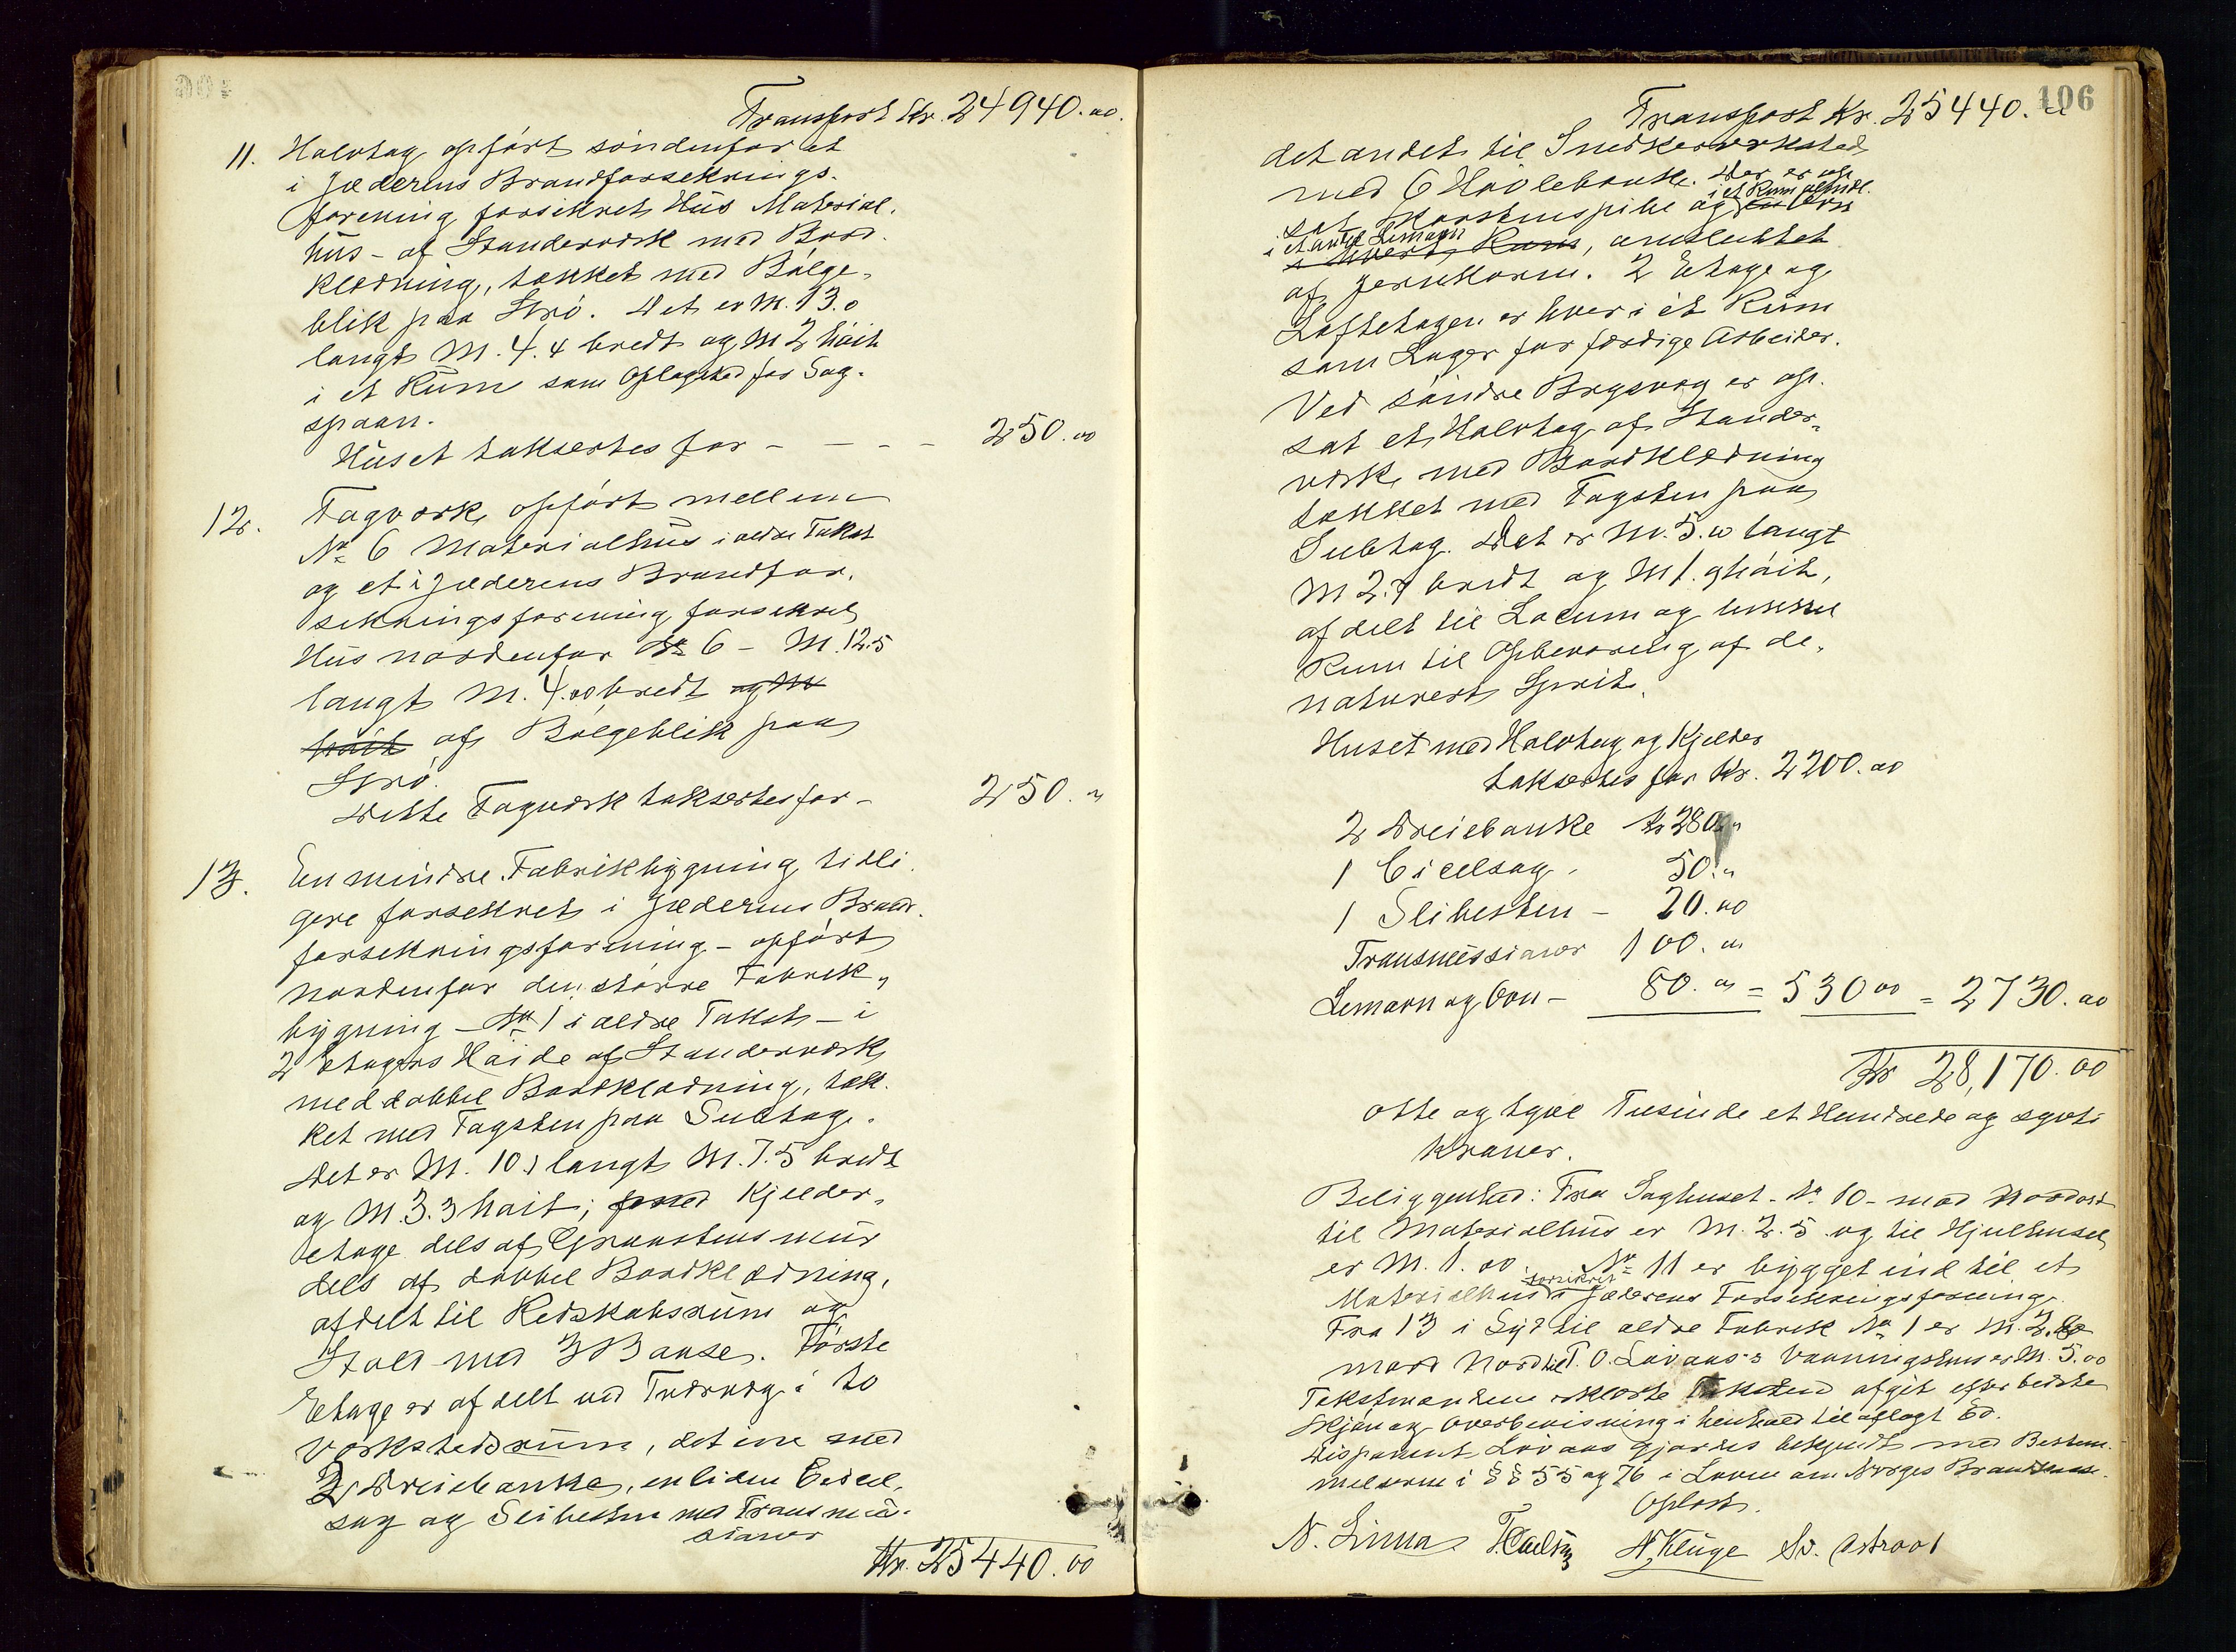 Transport Kr. 24940.00.
11. Halvtag opført søndenfor et
i Jæderens Brandforseknings-
forening forsikret Hus Material-
hus - af Standerværk med Bord-
klædning, tækket med Bølge-
blik paa Strø. Det er M. 13.0
langt M. 4.4 bredt og M 2 høit
i et Rum som Oplagsted for Sag-
spaan.
Huset takseertes for - - - - 250.00
12. Tagværk opført mellem
No 6 Materialhus i ældre Takst
og et i Jæderens Brandfor-
sekningsforening forsekret
Hus nordenfor No 6 - M. 12.5
langt M. 4.00 bredt og M
høit af Bølgeblik paa
Strø.
Dette Tagværk takseertes for - 250.00
13. En mindre Fabrikbygning tidli-
gere forsekret i Jæderens Brand-
forsekningsforening - opført
nordenfor den større Fabrik-
bygning - No 1 i ældre Takst - i
2 Etagers Høide af Standerværk
med dobbel Bordklædning, tæk-
ket med Tagsten paa Sutag.
Det er M. 10.1 langt M. 7.5 bredt
og M. 3.3 høit; med Kjelder-
etage dels af Graastensmur
dels af dobbel Bordklædning,
afdelt til Redskabsrum og
Stald med 3 Baase. Første
Etage er afdelt ved Tværvæg i to
Værkstedsrum, det ene med
2 Dreiebænke, en liden Circel-
sag og Slibesten med Transmis-
sioner
Kr. 25440.00
106
Transport Kr. 25440.00
det andet til Snedkerværksted
med 6 Høvlebænke. Der er op-
i et Rum almindl.
sat Skorstenspibe og en Ovn
i et andet Limovn
i hvert Rum, omsluttet
af Jernkarm. 2 Etage og
Loftetagen er hver i et Rum
som Lager for færdige Arbeider.
Ved søndre Brystvæg er op-
sat et Halvtag af Stander-
værk med Bordklædning
tækket med Tagsten paa
Sutag. Det er M. 5.10 langt
M 2.7 bredt og M 1.9 høit,
afdelt til Locum og
Rum til Opbevaring af de-
natureret Sprit.
Huset med Halvtag og Kjelder
takseertes for Kr. 2200.00
2 Dreiebænke Kr 280.00
1 Circelsag - 50.00
1 Slibesten - 20.00
Transmissioner 100.00
Limovn og Ovn - 80.00 = 530 00 = 2730.00
Kr 28,170.00
otte og tyve Tusinde et Hundrede og sytti
Kroner.
Beliggenhed: Fra Saghuset - No 10 - mod Nordost
til Materialhus er M. 2.5 og til Hjulhuset
er M. 1.00. No 11 er bygget ind til et
forsikret
Materialhus i Jæderens Forsekningsforening.
Fra 13 i Syd til ældre Fabrik No 1 er M. 2.80
mod Nord til T. O. Lövaas's Vaaningshus er M. 5.00
Takstmændene erklærte Taksten afgit efter bedste
Skjøn og Overbevisning i henhold til aflagt Ed.
Disponent Lövaas gjordes bekjendt med Bestem-
melserne i §§ 55 og 76 i Loven om Norges Brandkasse.
Oplæst.
N. Kluge Sv. Østraat